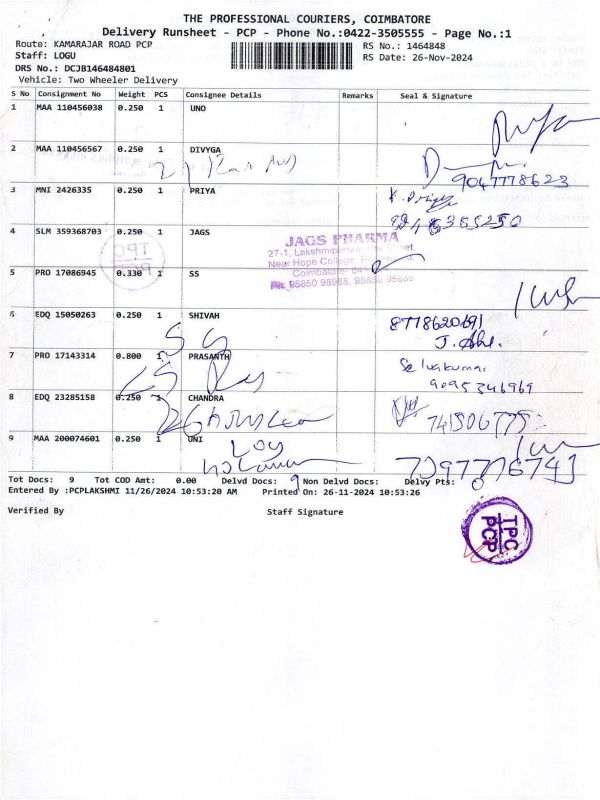 THE PROFESSIONAL COURIERS, COIMBATORE
Delivery Runsheet - PCP - Phone No.:0422-3505555 - Page No.:1
Route: KAMARAJAR ROAD PCP
RS No.: 1464848
Staff: LOGU
RS Date: 26-Nov-2024
DRS No.: DCJB146484801
Vehicle: Two Wheeler Delivery
S No Consignment No Weight PCS Consignee Details Remarks Seal & Signature
1 MAA 110456038 0.250 1 UNO
2 MAA 110456567 0.250 1 DIVYGA
9047778623
3 MNI 2426335 0.250 1 PRIYA
4 SLM 359368703 0.250 1 JAGS
JAGS PHARMA
Near Hope College
Coimbatore
TPC
PCP
5 PRO 17086945 0.330 1 SS
6 EDQ 15050263 0.250 1 SHIVAH
8778620691
7 PRO 17143314 0.800 1 PRASANTH
Selvakumar
9095346969
8 EDQ 23285158 0.250 1 CHANDRA
9 MAA 200074601 0.250 1 UNI
Tot Docs: 9 Tot COD Amt: 0.00 Delvd Docs: 9 Non Delvd Docs: Delvy Pts:
Entered By :PCPLAKSHMI 11/26/2024 10:53:20 AM Printed On: 26-11-2024 10:53:26
Verified By Staff Signature
TPC
PCP